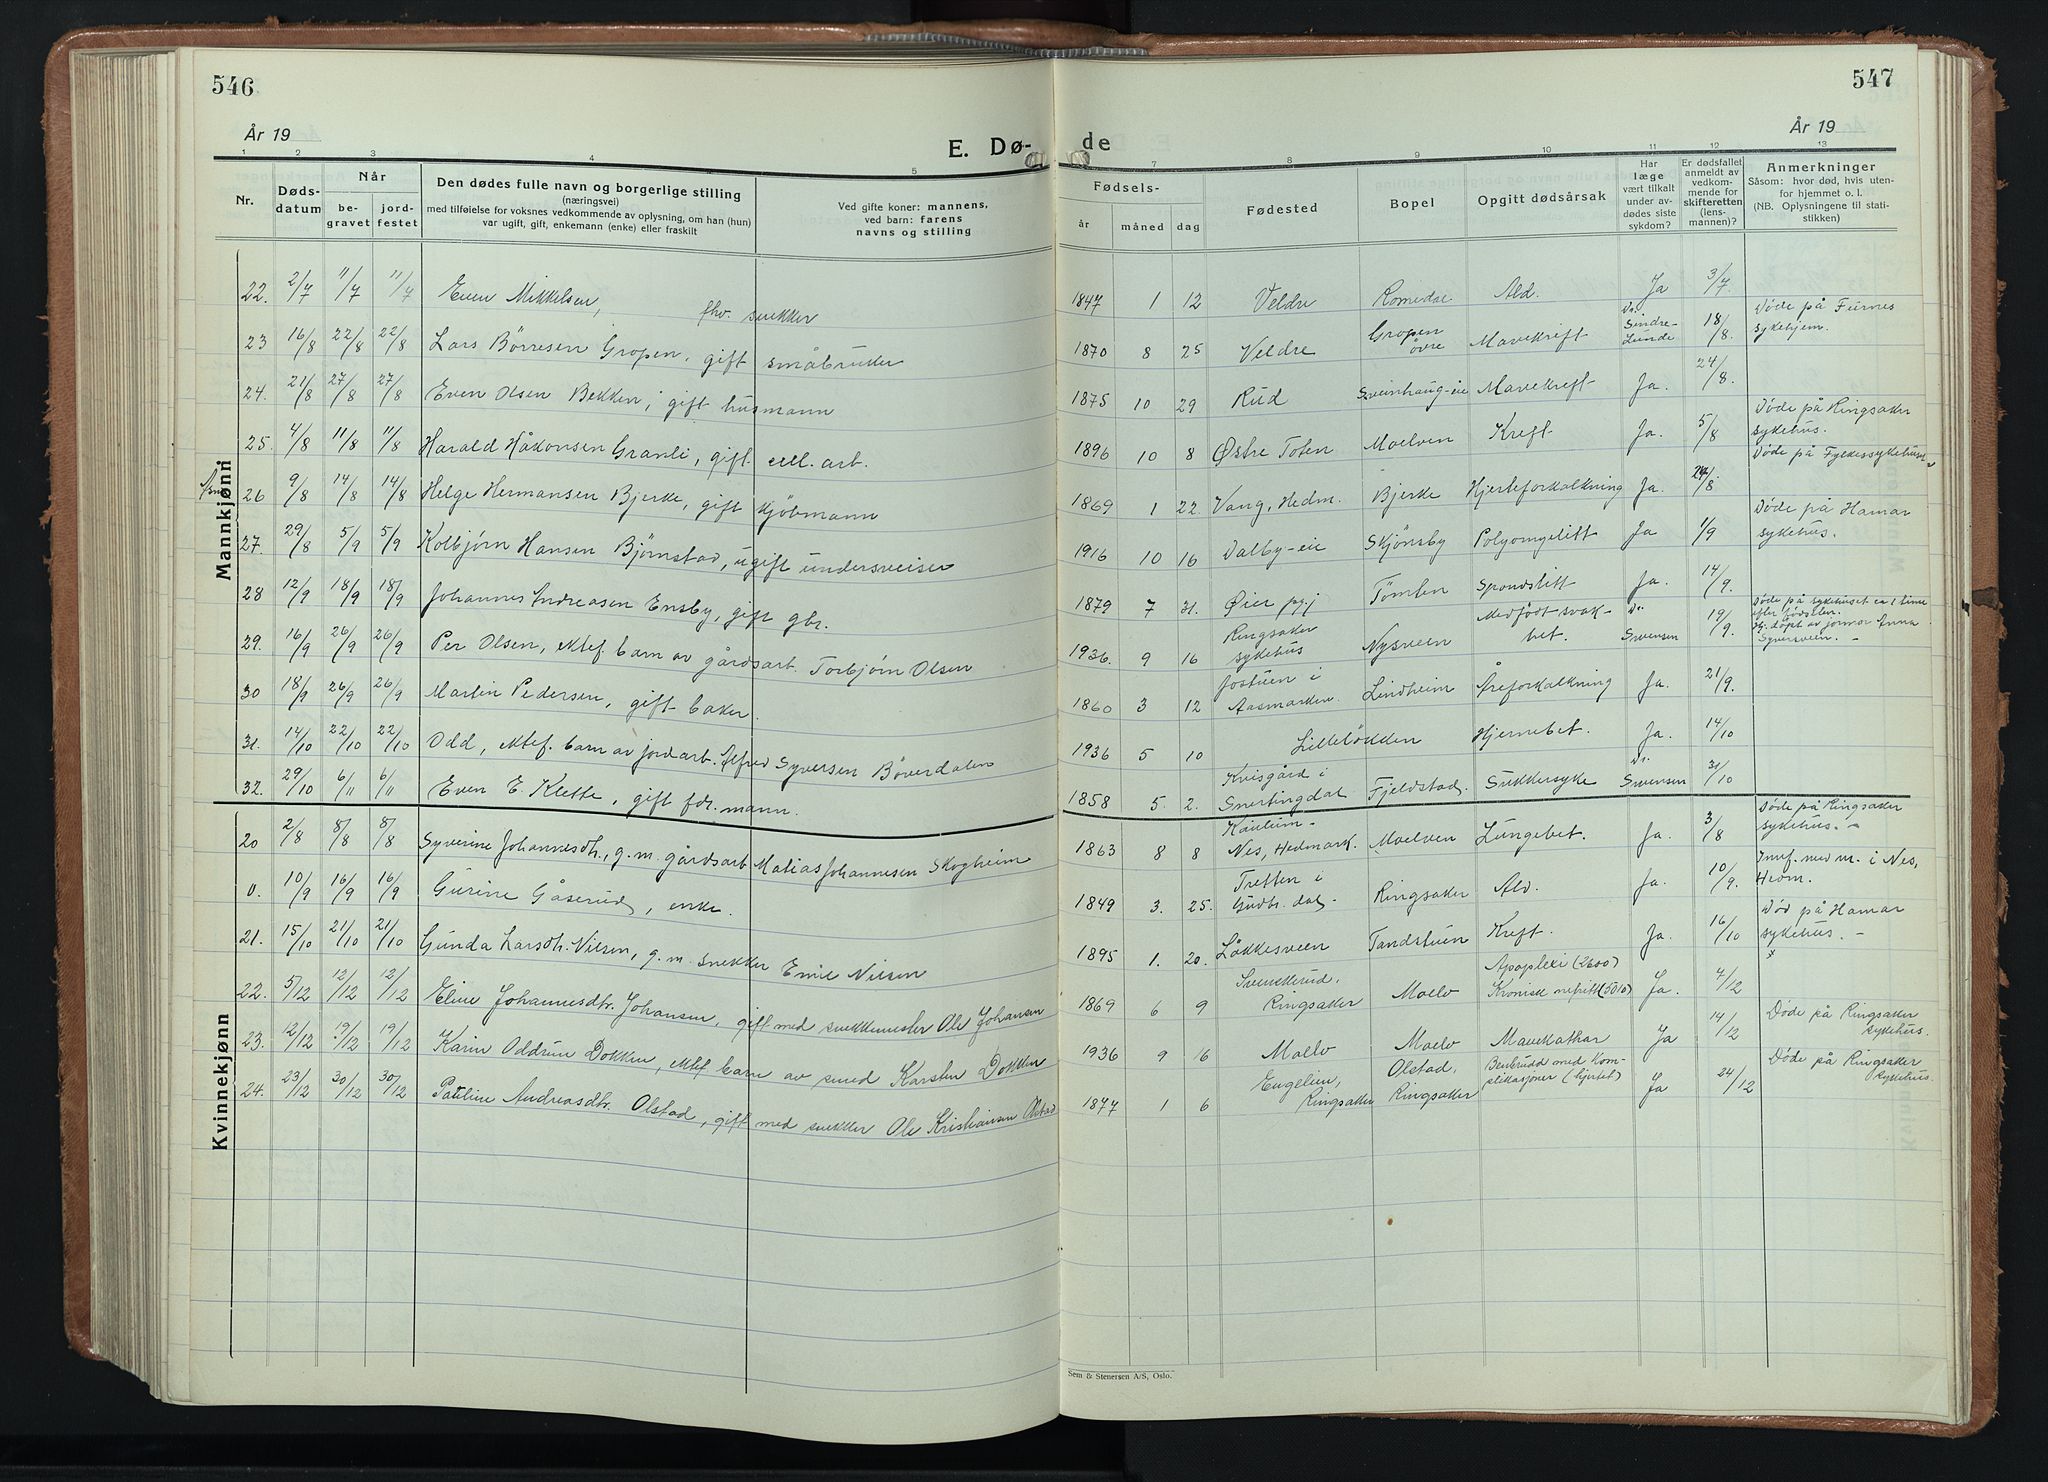 546
År 19
E. Dø-
1 2 3 4 5
Nr.
Døds-
datum
Når
be-
gravet
jord-
festet
Den dødes fulle navn og borgerlige stilling
(næringsvei)
med tilføielse for voksnes vedkommende av oplysning, om han (hun)
var ugift, gift, enkemann (enke) eller fraskilt
Ved gifte koner: mannens,
ved barn: farens
navns og stilling
Mannkjønn
22. 2/7 11/7 11/7 Even Mikkelsen, fhv. snekker
23 16/8 22/8 22/8 Lars Børresen Gropen, gift småbruker
24. 21/8 27/8 27/8 Even Olsen Bekken, gift husmann
25. 4/8 11/8 11/8 Harald Håkonsen Granli, gift cell. arb.
26 9/8 14/8 14/8 Helge Hermansen Bjerke, gift kjøbmann
27. 29/8 5/9 5/9 Kolbjørn Hansen Bjørnstad, ugift undersveiser
28 12/9 18/9 18/9 Johannes Andreasen Ensby, gift gbr.
29. 16/9 26/9 26/9 Per Olsen, ektef. barn av gårdsarb. Torbjørn Olsen
30 18/9 26/9 26/9 Martin Pedersen, gift baker.
31. 14/10 22/10 22/10 Odd, ektef. barn av jordarb. Alfred Syversen Böverdalen
32. 29/10 6/11 6/11 Even E. Klette, gift fdr. mann.
Kvinnekjønn
20 2/8 8/8 8/8 Syverine Johannesdtr., g.m. gårdsarb Matias Johannesen Skogheim
0. 10/9 16/9 16/9 Gurine Gåserud, enke.
21. 15/10 21/10 21/10 Gunda Larsdtr. Nilsen, g.m. snekker Emil Nilsen
22. 5/12 12/12 12/12 Eline Johannesdtr. Johansen, gift med snekkermester Ole Johansen
23. 2/12 19/12 19/12 Karin Oddrun Dokken, ektef barn av smed Karsten Dokken
24. 23/12 30/12 30/12 Pauline Andreasdtr. Olstad, gift med snekker Ole Kristiansen Olstad
547
de
År 19
7 8 9 10 11 12 13
Fødsels-
år måned dag
Fødested
Bopel
Opgitt dødsårsak
Har
læge
vært tilkalt
under av-
dødes siste
sykdom?
Er dødsfallet
anmeldt av
vedkom-
mende for
skifteretten
(lens-
mannen)?
Anmerkninger
Såsom: hvor død, hvis uten-
for hjemmet o. l.
(NB. Oplysningene til stati-
stikken)
1847 1 12 Veldre Romedre Ald. Ja 3/7
1870 8 25 Veldre Gropen øvre Mavekreft Dr. Sindre-Lunde 18/8. Døde på Furnes sykehjem.
1875 10 29 Rud Sveinhaug-eie Mavekreft Ja. 24/8.
1896 10 8 Østre Toten Moelven Kreft Ja. 5/8 Døde på Ringsaker sykehus.
1869 1 22 Vang, Hedm. Bjerke Hjerteforkalkning Ja. 24/8. Døde på Fylkessykehuset
1916 10 16 Dalby-eie Skjønsby Polyomyelitt Ja 1/9 Døde på Hamar sykehus.
1879 7 31. Øier pgj Tömten Spondslitt Ja. 14/9.
1936. 9 16 Ringsaker sykehus Nysveen Medfödt svak-het. Dr. Svensen 19/9. Döde på sykehuset ca 1 time efter födselen. Hj. döpt av jormor Anna Syversveen. -
1860 3 12 Jostuen i Aasmarken Lindheim Åreforkalkning Ja. 21/9.
1936 5 10 Lilleløkken Hjernebet. Ja. 14/10
1858 5. 2. Kvisgård i Snertingdal Fjeldstad. Sukkersyke Dr. Svensen 31/10
1863 8 8 Kaulum - Nes, Hedmark. Moelven Lungebet. Ja. 3/8 Døde på Ringsaker sykehus. -
1849 3. 25. Tretten i Gudbr. dal - Ringsaker Ald. Ja. 10/9. Innf. ned m. i Nes, Hedm.
1895 1. 20. Løkkesveen Tandstuen Kreft. Ja. 16/10 Død på Hamar sykehus. -
1869 6 9 Svenskerud, Ringsaker Moelv Apoplexi (2600) Kronisk nefritt (5010) Ja. 4/12
1936 9 16 Moelv Moelv Mavekathar Ja 14/12 Døde på Ringsaker sykehus.
1877 1 6 Engelien, Ringsaker Olstad, Ringsaker Benbrudd med Kom-plikasjoner (hjertet) Ja 24/12 Døde på Ringsaker sykehus.
Sem & Stenersen A/S, Oslo.